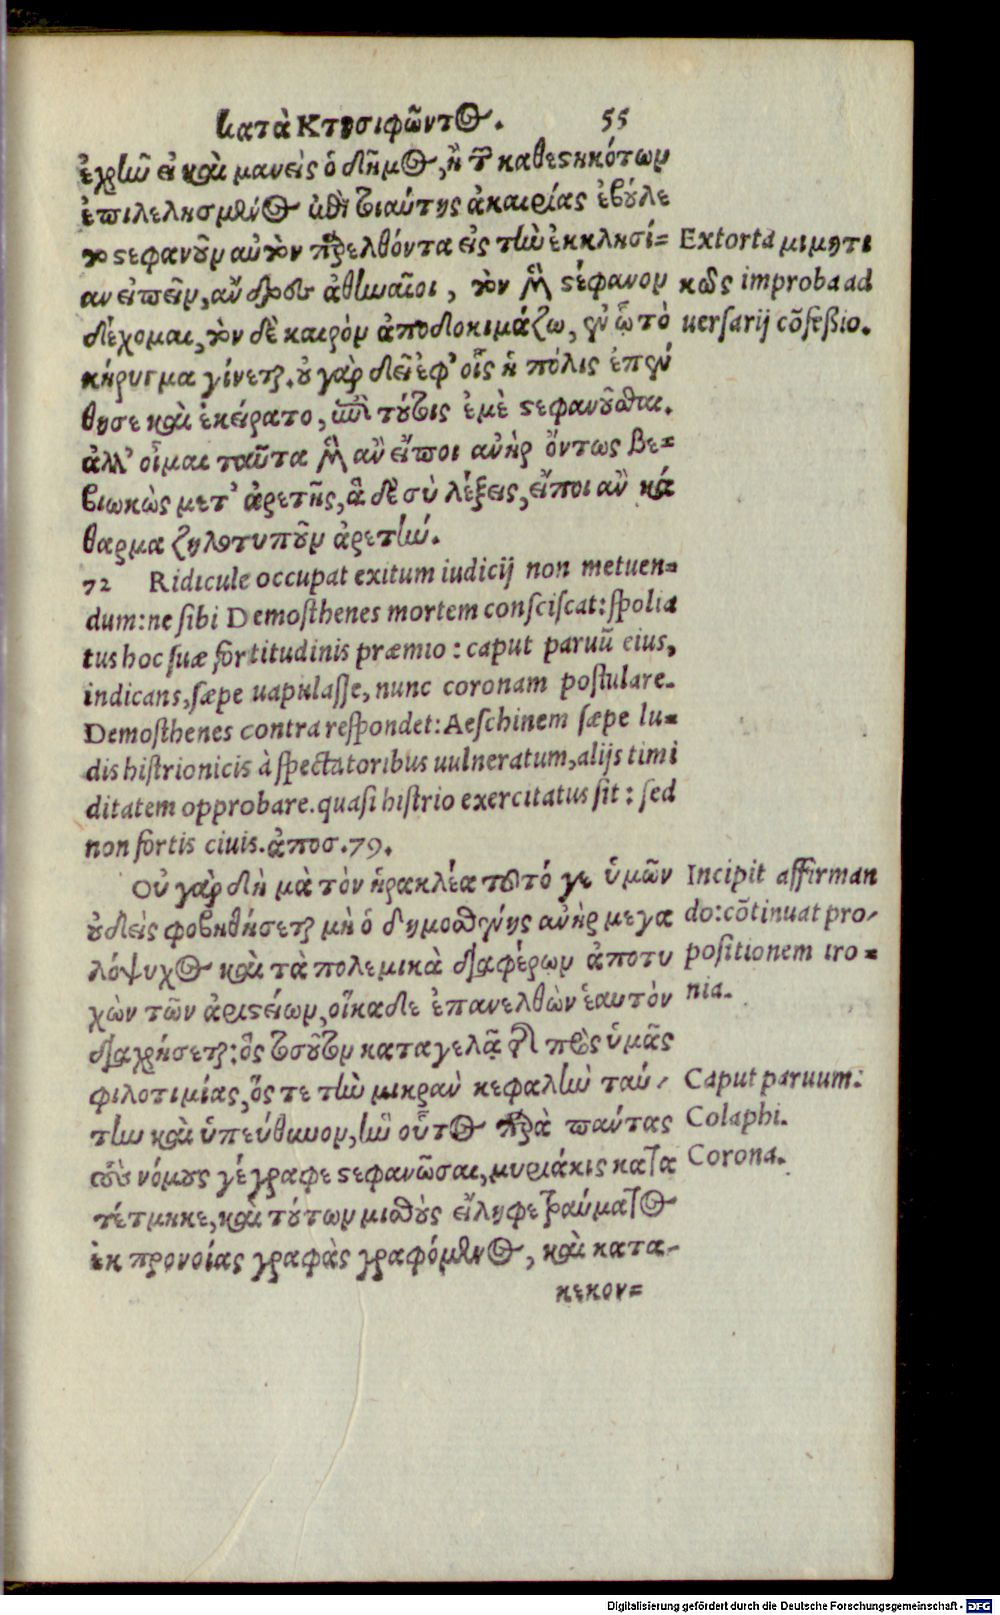 κατὰ Κτησιφῶντος. 55
ἐχρῆν εἰ καὶ μανεὶς ὁ δῆμος, ἢ τῶν καθεστηκότων
ἐπιλελησμένος ἐπὶ τοιαύτης ἀκαιρίας ἐβούλε
το στεφανοῦν αὐτὸν παρελθόντα εἰς τὴν ἐκκλησί=
αν εἰπεῖν, ἄνδρες ἀθηναῖοι, τὸν μὲν στέφανον
δέχομαι, τὸν δὲ καιρὸν ἀποδοκιμάζω, ἐν ᾧ τὸ
κήρυγμα γίνεται. οὐ γὰρ δεῖ ἐφ' οἷς ἡ πόλις ἐπέν
θησε καὶ ἐκείρατο, ἐπὶ τούτοις ἐμὲ στεφανοῦσθαι.
ἀλλ' οἶμαι ταῦτα μὲν ἂν εἴποι ἀνὴρ ὄντως βε=
βιωκὼς μετ' ἀρετῆς, ἃ δὲ σὺ λέξεις, εἴποι ἂν κά
θαρμα ζηλοτυποῦν ἀρετήν.
Extorta μιμητι
κῶς improba ad
uersarij cõfeßio.
72 Ridicule occupat exitum iudicij non metuen=
dum: ne sibi Demosthenes mortem consciscat: spolia
tus hoc suæ fortitudinis præmio: caput paruũ eius,
indicans, sæpe uapulasse, nunc coronam postulare.
Demosthenes contra respondet: Aeschinem sæpe lu=
dis histrionicis à spectatoribus uulneratum, alijs timi
ditatem opprobare. quasi histrio exercitatus sit: sed
non fortis ciuis. ἀποσ. 79.
Οὐ γὰρ δὴ μὰ τὸν ἡρακλέα τοῦτό γε ὑμῶν
οὐδεὶς φοβηθήσεται μὴ ὁ δημοσθένης ἀνὴρ μεγα
λόψυχος καὶ τὰ πολεμικὰ διαφέρων ἀποτυ
χὼν τῶν ἀριστείων, οἴκαδε ἐπανελθὼν ἑαυτὸν
διαχρήσεται: ὃς τοσοῦτον καταγελᾷ τῆς πρὸς ὑμᾶς
φιλοτιμίας, ὅς τε τὴν μικρὰν κεφαλὴν ταύ-
την καὶ ὑπεύθυνον, ἣν οὗτος παρὰ πάντας
τοὺς νόμους γέγραφε στεφανῶσαι, μυριάκις κατα
τέτμηκε, καὶ τούτων μισθοὺς εἴληφε τραύματος
ἐκ προνοίας γραφὰς γραφόμενος, καὶ κατα-
κεκον=
Incipit affirman
do: cõtinuat pro-
positionem iro=
nia.
Caput paruum.
Colaphi.
Corona.
Digitalisierung gefördert durch die Deutsche Forschungsgemeinschaft - DFG